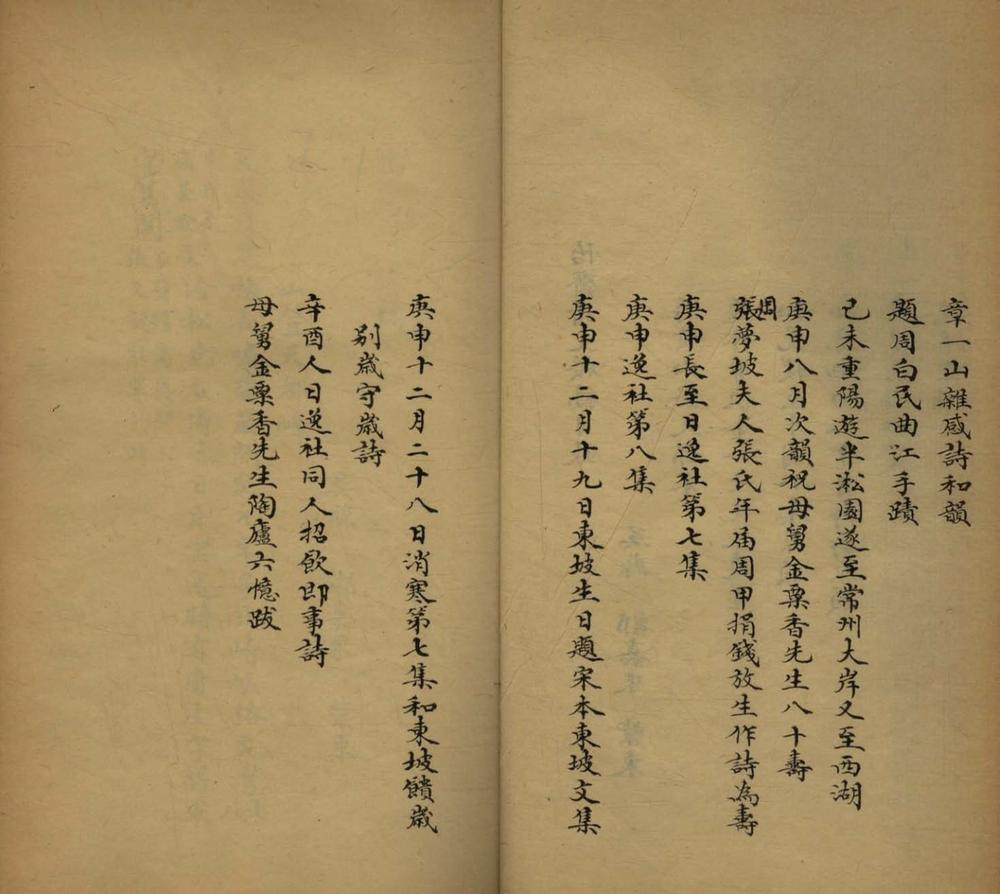 章一山雜感詩和韻
題周白民曲江手蹟
己未重陽遊半淞園遂至常州大岸又至西湖
庚申八月次韻祝母舅金粟香先生八十壽
周張夢坡夫人張氏年届周甲捐錢放生作詩為壽
庚申長至日逸社第七集
庚申逸社第八集
庚申十二月十九日東坡生日題宋本東坡文集
庚申十二月二十八日消寒第七集和東坡饋歲
別歲守歲詩
辛酉人日逸社同人招飲即事詩
母舅金粟香先生陶廬六憶跋